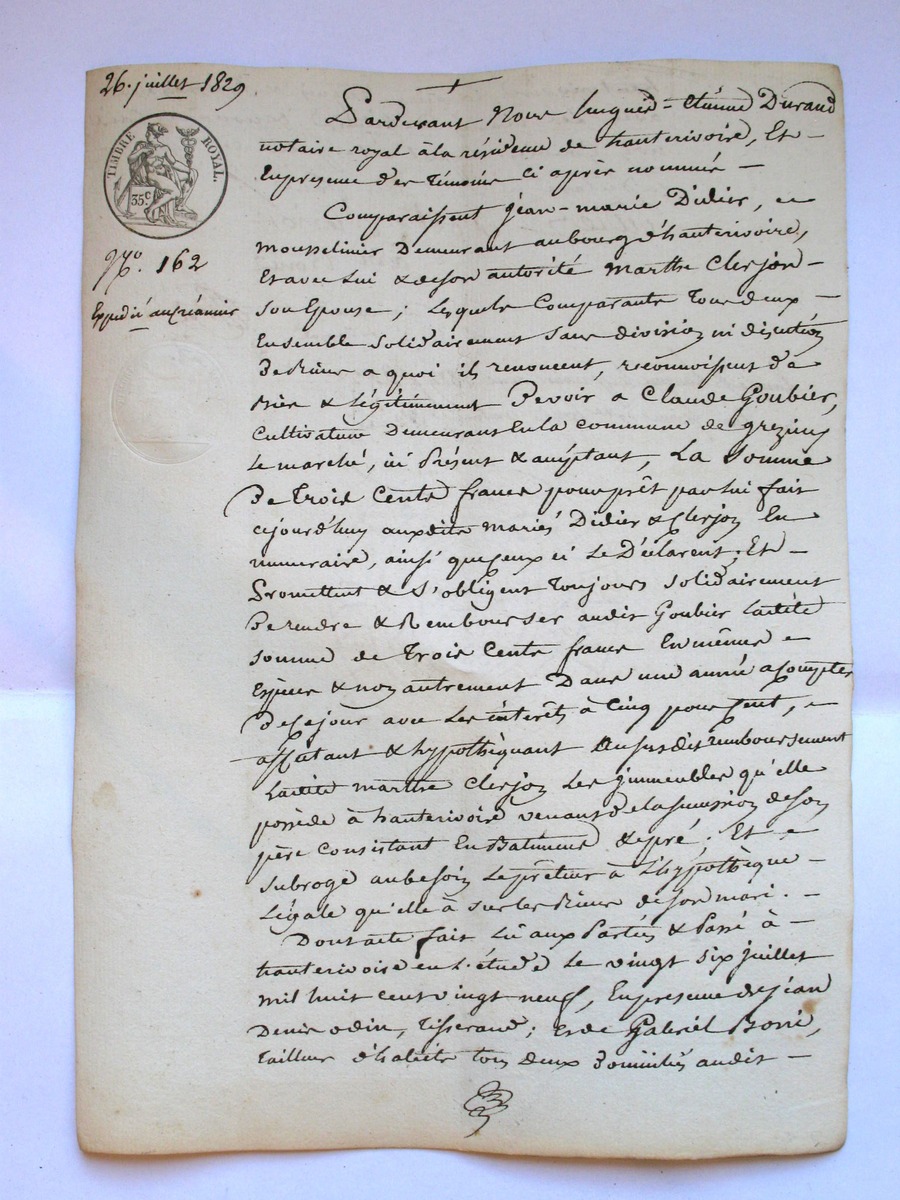 26. juillet 1829
TIMBRE ROYAL.
35 c
No. 162
Expédié au créancier
Pardevant Nous hugues-Etienne Durand
notaire royal à la résidence de hauterivoire, Et
En presence des Témoins ci après nommés
Comparaissent jean-marie Didier,
mousselinier Demeurant au bourg d'hauterivoire,
Et avec lui & de son autorité marthe Clerjon
son Epouse ; Lesquels Comparants Tous deux
Ensemble solidairement sans division ni discution
De biens a quoi ils renoncent, reconnoissent de
bien & légitimement Devoir a Claude Goubier,
Cultivateur Demeurant En la commune de grezieu
Le marché, ici Présent & acceptant, La somme
De Trois Cents francs pour prêt par lui fait
cejourd'huy auxdits mariés Didier & Clerjon En
numeraire, ainsi que Ceux ci Le Déclarent ; Et
Promettent & s'obligent Toujours solidairement
De rendre & Rembourser audit Goubier Ladite
somme de Trois Cents francs En mêmes
Espèces & non autrement Dans une année a Compter
De Ce jour avec Les intérêts à Cinq pour Cent,
affectant & hypothéquant Au susdit remboursement
Ladite marthe Clerjon Les immeubles qu'elle
possède à hauterivoire venant de la succession de son
père Consistant En Batiments & pré ; Et
subroge au besoin Le prêteur à L'hypothèque
Légale qu'elle à sur les Biens de son mari.
Dont acte fait Lu aux Parties & Passé à
hauterivoire en L'étude Le vingt six juillet
mil huit cent vingt neuf, En presence de jean
Denis odin, Tisserand ; Et de Gabriël
Tailleur d'habits tous deux Domiciliés audit